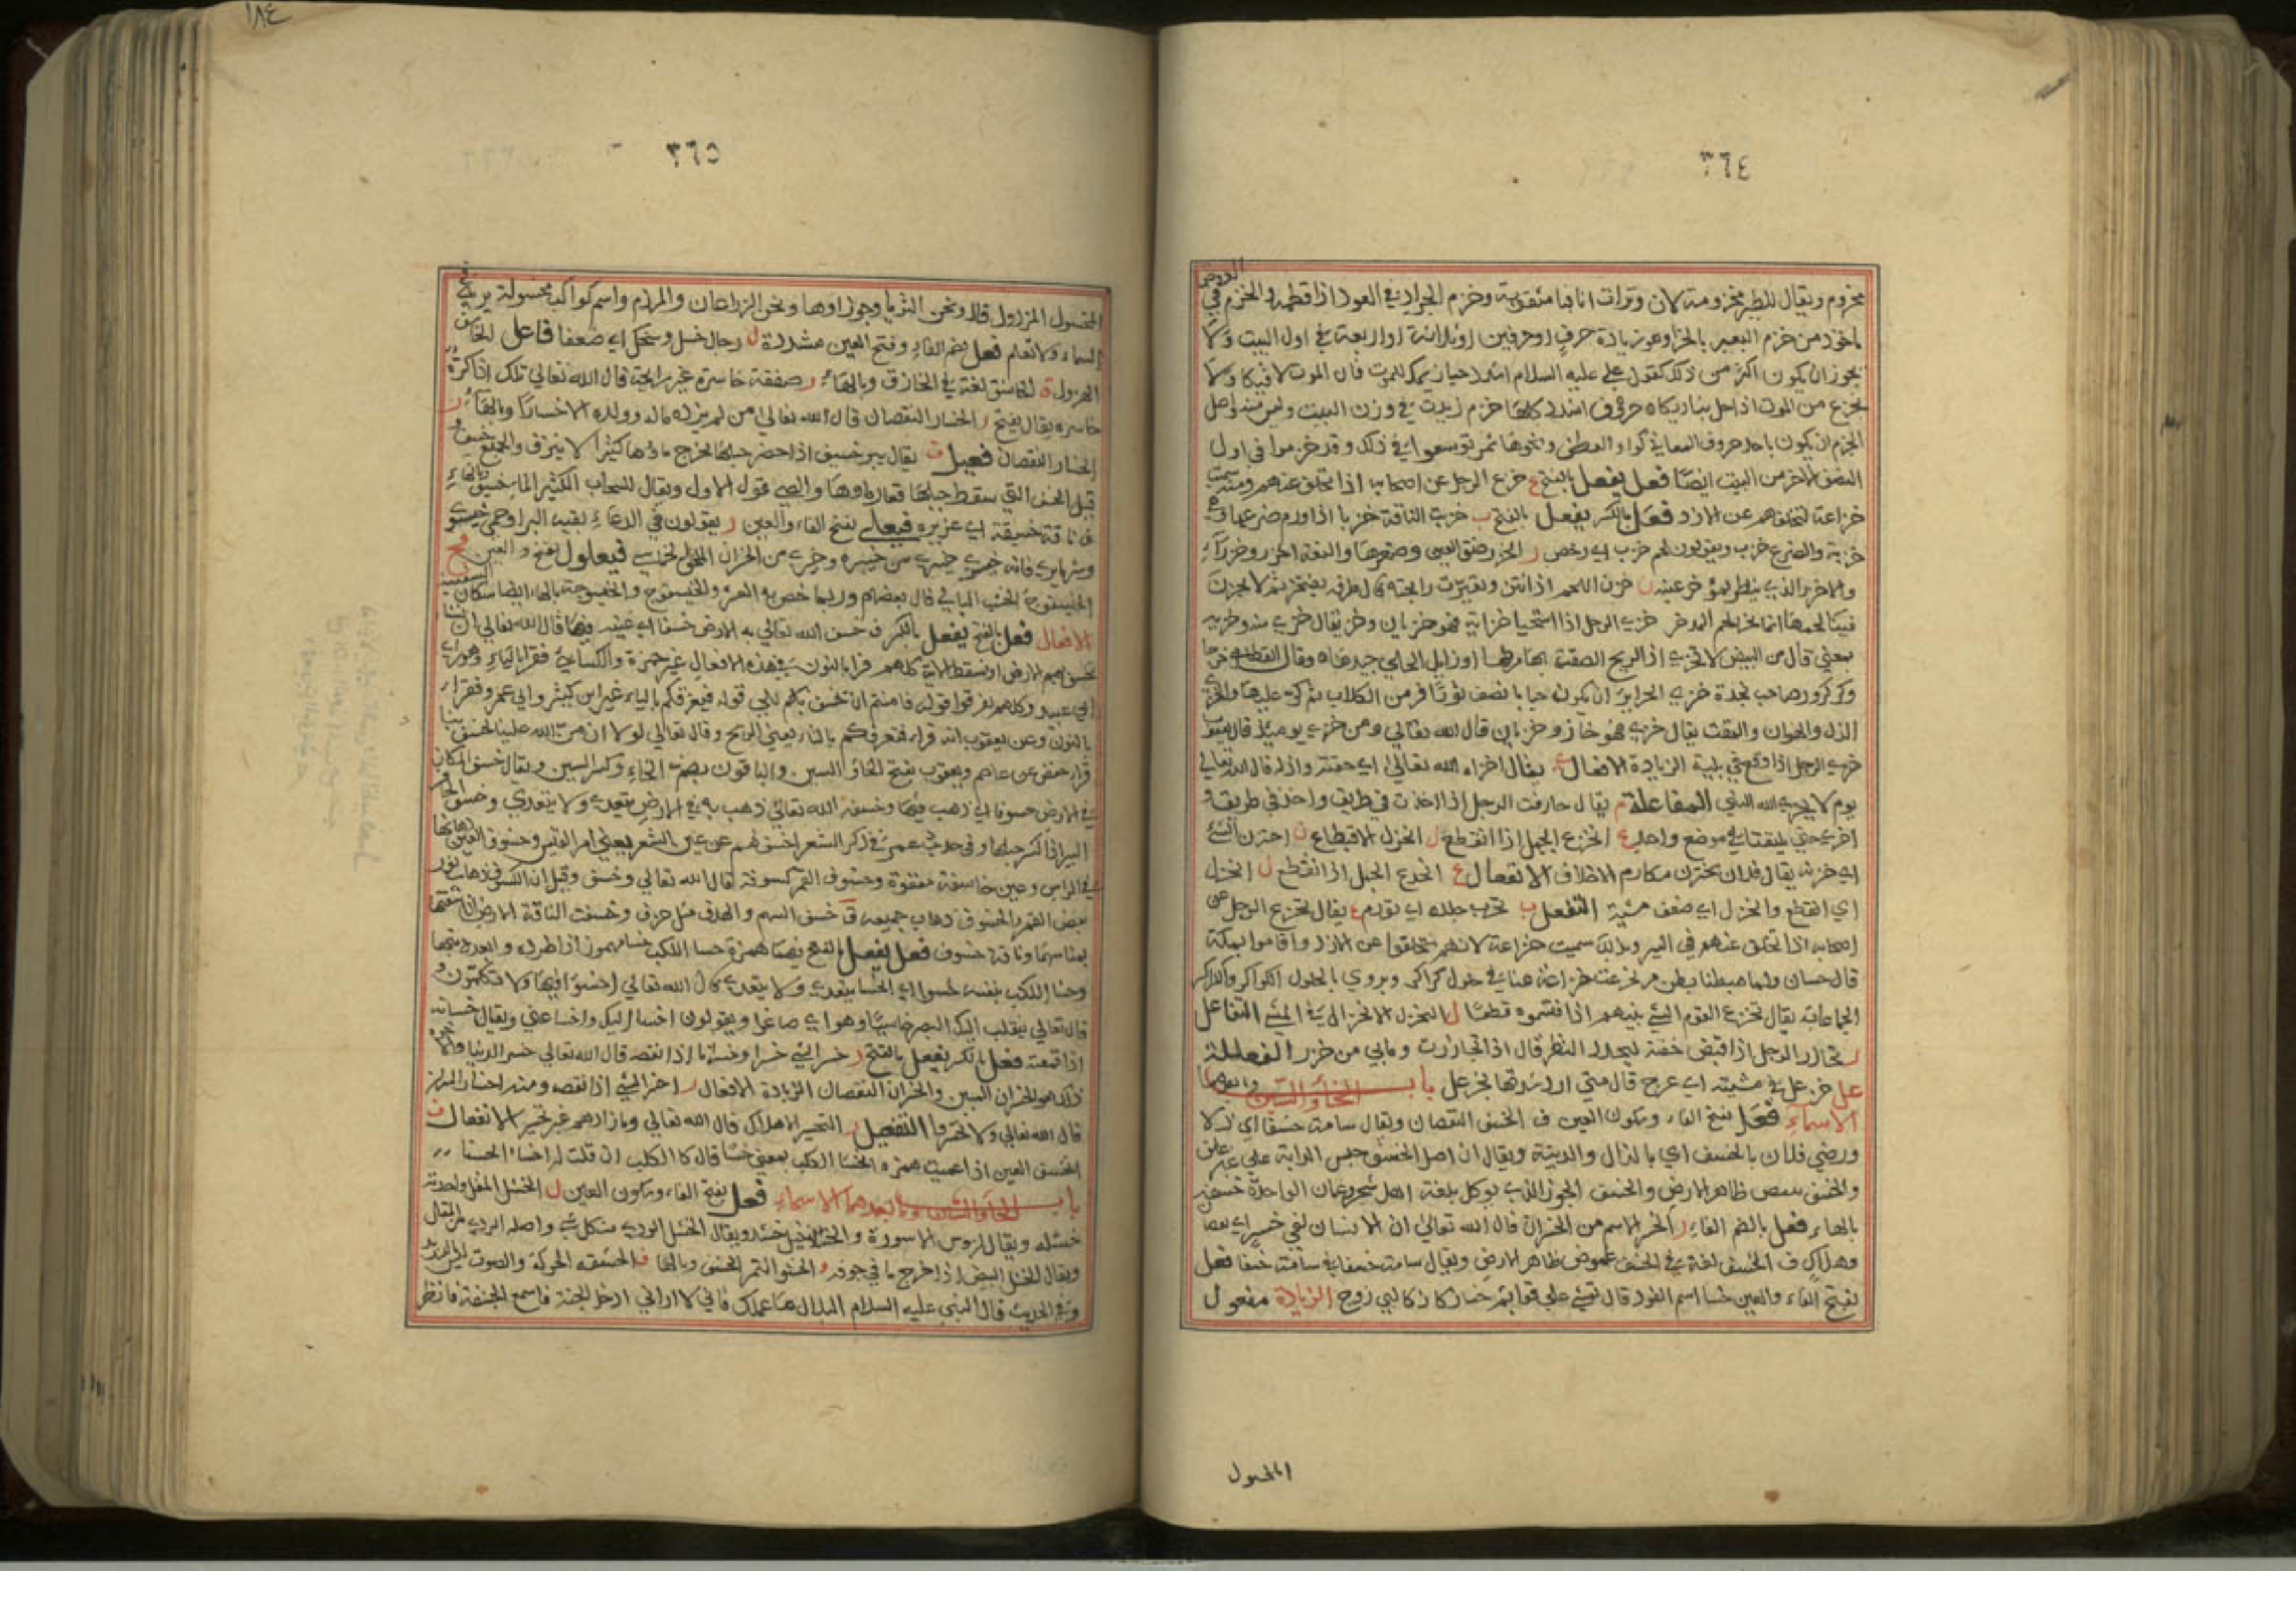 ٣٦٤
مخزوم ويقال للطير مخزومة لان وترات انافها مثقوبة وخزم الجراد في العود اذا نظمه والخزم في العروض
ماخوذ من خزم البعير بالخزام وهو زيادة حرف او حرفين او ثلاثة او اربعة في اول البيت ولا
يجوز ان يكون اكثر من ذلك كقول علي عليه السلام اشدد حيازيمك للموت فان الموت لاقيكا ولا
تجزع من الموت اذا حل بناديكا حروف اشدد كلها خزم زيدت في وزن البيت وليس منه واصل
الخزم ان يكون باحد حروف المعاني كواو العطف ونحوها ثم توسعوا في ذلك وقد خزموا في اول
النصف الاخر من البيت ايضا فعل يفعل بالفتح ع خزع الرجل عن اصحابه اذا تخلف عنهم ومنه سميت
خزاعة لتخلفهم عن الازد فعل بالكسر يفعل بالفتح ب خزبت الناقة خزبا اذا ورم ضرعها وهي
خزبة والضرع خزب ويقولون لحم خزب اي رخص ر الخزر ضيق العين وصغرها والنعت اخزر وخزراء
والاخزر الذي ينظر بمؤخر عينه ن خزن اللحم اذا انتن وتغيرت رايحته قال طرفه ثم لا يخزن
فينا لحمها انما يخزن لحم المدخر خزي الرجل اذا استحيا خزاية فهو خزيان وخز يقال خزي منه وخزيه
بمعنى قال من البيض لا تخزي اذا الريح الصقت بها مرطها او زايل الحلي جيدها وقال القطامي خرجا
وكر كرور صاحب نجدة خزي الحراير ان يكون جبانا
الذل والهوان والمقت يقال خزي فهو خاز وخزيان قال الله تعالى ومن خزي يومئذ قال
خزي الرجل اذا وقع في بلية الزيادة الافعال ي يقال اخزاه الله تعالى اي مقته واذله قال الله تعالى
يوم لا يخزي الله النبي المفاعلة م يقال خازمت الرجل اذا اخذت في طريق واخذ في طريقة
اخرى حتى يلتقيا في موضع واحد ع الخزع الحبل اذا انقطع ل الخزل الاقتطاع ن اختزن الشئ
اي خزنه يقال فلان يختزن مكارم الاخلاق الانفعال ع انخزع الحبل اذا انقطع ل انخزل
اي انقطع وانخزل اي ضعف مشيه التفعل ب تخزب جلده اي تورم ع يقال تخزع الرجل عن
اصحابه اذا تخلف عنهم في السير وبذلك سميت خزاعة لانهم تخلفوا عن الازد واقاموا بمكة
قال حسان ولما هبطنا بطن مر تخزعت خزاعة عنا في حلول كراكر ويروى بالحلول الكراكر والكراكر
الجماعات يقال تخزع القوم الشئ بينهم اذا اقتسموه قطعا ل التخزل الانخزال في المشي التفاعل
ر تخازر الرجل اذا قبض جفنه ليحدد النظر قال اذا تخازرت وما بي من خزر الفعللة
عل خزعل في مشيته اي عرج قال متى ارد شدتها تخزعل باب الخاء والسين وما بعدهما
الاسماء فعل بفتح الفاء وسكون العين ف الخسف النقصان ويقال سامه خسفا اي ذلا
ورضي فلان بالخسف اي بالذل والدنية ويقال ان اصل الخسف حبس الدابة على غير علف
والخسف ظاهر الارض والخسف الجوز الذي يؤكل بلغة اهل شحر وعمان الواحدة خسفة
بالهاء فعل بالضم الفاء ر الخسر الاسم من الخسران قال الله تعالى ان الانسان لفي خسر اي نقصا
وهلاك ف الخسف لغة في الخسف غموض ظاهر الارض ويقال سامه خسفا في سامه خسفا فعل
بفتح الفاء والعين خسا اسم الفرد قال تمشي على قوايم خسا زكا زكا ليس زوج الزيادة مفعول
المخسول
١٨٤
٣٦٥
المخسول المرذول قال ونحن الثريا وجوزاوها ونحن الذراعان والمرزم وانتم كواكب مخسولة يرى في
السماء ولا تعلم فعل بضم الفاء وفتح العين مشددة ل رجال خسل وسخل اي ضعفا فاعل
ق الخاسق لغة في الخازق وبالهاء ر صفقة خاسرة غير رابحة قال الله تعالى تلك اذا كرة
خاسره فعال بفتح ر الخسار النقصان قال الله تعالى من لم يزده ماله وولده الا خسارا وبالهاء ر
الخسار النقصان فعيل ف يقال بير خسيف اذا حفر جبلها فخرج ماؤها كثيرا لا ينزف والجميع خسف و
قيل الخسف التي سقط جبلها فغار ماوها والصحيح قول الاول ويقال للسحاب الكثير الماء خسيف وبالهاء
ف ناقة خسيفة اي عزيره فيعلى بفتح الفاء والعين ر يقولون في الدعاء بفيه البرا وحمى خيبرى
وشر ما يرى فانه خيسرى خيبرى من خيبره وخيسرى من الخسران فيعلول بفتح الفاء والعين فج
الخيسفوج الخشب البالي قال بعضهم وربما خص به العشر والخيسفوج والخيسفوجة بالهاء ايضا سكان السفينة
الافعال فعل بالفتح يفعل بالكسر ف خسف الله تعالى به الارض خسفا اي غيبه فيها قال الله تعالى ان نشا
نخسف بهم الارض او نسقط الاية كلهم قرا بالنون في هذه الافعال غير حمزة والكسائي فقرا بالياء وهو راى
ابي عبيد وكلهم لم يقرقوا قوله فامنتم ان نخسف بكم الى قوله فيغرقكم بالياء غير ابن كثير وابي عمرو فقرا
بالنون وعن يعقوب انه قراء فتغرقكم بالتاء يعني الريح وقال تعالى لولا ان من الله علينا لخسف بنا
قراء حفص عن عاصم ويعقوب بفتح الخاء والسين والباقون بضم الخاء وكسر السين ويقال خسف المكان
في الارض خسوفا اي ذهب فيها وخسفه الله تعالى ذهب به في الارض يتعدى ولا يتعدى وخسف
البير اذا كسر جبلها وفي حديث عمر في ذكر الشعر اخسف لهم عن عين الشعر يعني امر القيس وخسوف العين ذهابها
في الراس وعين خاسفة مفقوة وخسوف القمر كسوفه قال الله تعالى وخسف وقيل ان الكسوف ذهاب نور
بعض القمر والخسوف ذهاب جميعه ق خسق السهم والهدف مثل خزق وخسقت الناقة الارض اذا شقتها
بمناسمها وناقة خسوق فعل يفعل بالفتح فيهما همزة خسا الكلب خسا مهموز اذا طرده وابعده
وخسا الكلب بنفسه خسوا اي انخسا يتعدى ولا يتعدى قال الله تعالى اخسوا فيها ولا تكلمون و
قال تعالى ينقلب اليك البصر خاسيا وهو اي صاغرا ويقولون اخسا اليك واخسا عني ويقال خسات
اذا قمعته فعل بالكسر يفعل بالفتح ر خسر الشئ خسرا وخسرانا اذا نقصه قال الله تعالى خسر الدنيا والاخره
ذلك هو الخسران المبين والخسران النقصان الزيادة الافعال ر اخسر الشئ اذا نقصه ومنه اخسار الميزان
قال الله تعالى ولا تخسروا التفعيل ر التخسير الاهلاك قال الله تعالى وما زادوهم غير تخسير الانفعال ف
انخسفت العين اذا عميت همزه انخسا الكلب بمعنى خسا قال كالكلب ان قلت له اخسا انخسا
باب الخاء والشين وما بعدهما الاسماء فعل بفتح الفاء وسكون العين ل الخشل المقل واحدته
خشله ويقال لروس الاسورة والخلاخيل خشل ويقال الخشل الردي من كل شئ واصله الردي من المقل
ويقال الخشل البيض اذا اخرج ما في جوفه و الخشو التمر الخشف وبالهاء ف الخشفه الحركة والصوت ليس بالشديد
وفي الحديث قال النبي عليه السلام لبلال ما عملك فاني لا اراني ادخل الجنة فاسمع الخشفة فانظر